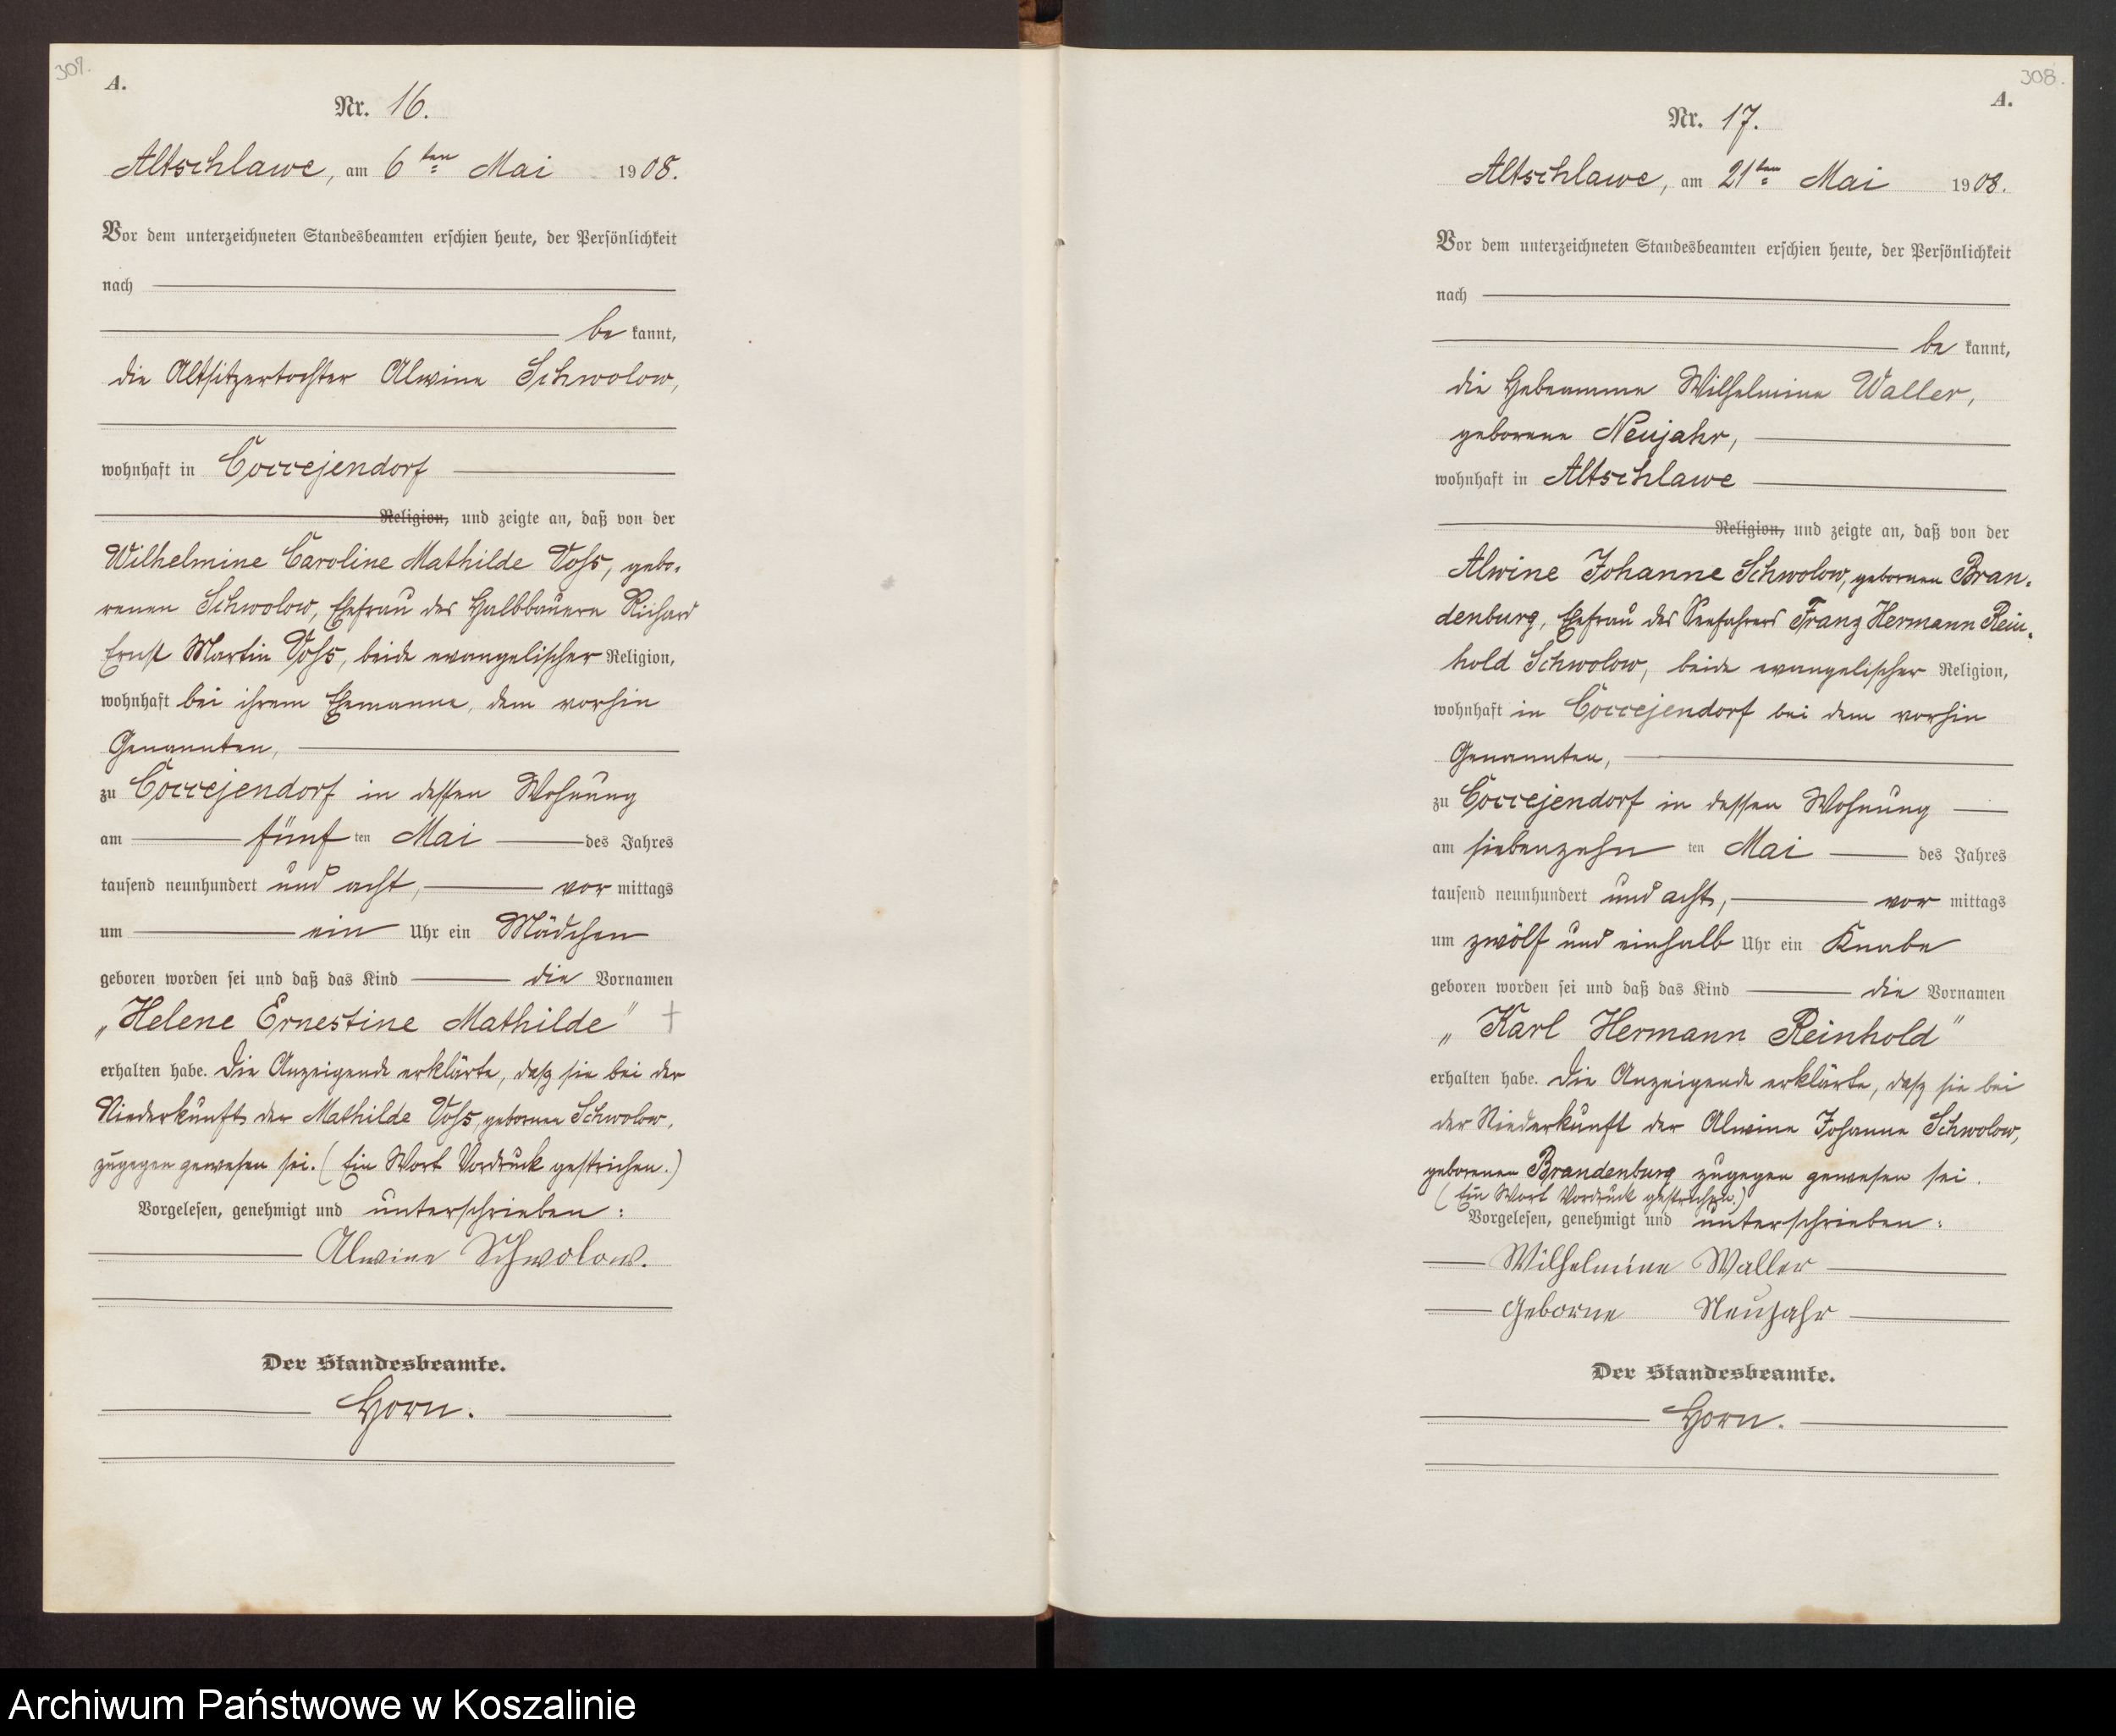 307.
A.
Nr. 16.
Altschlawe, am 6ten Mai 1908.
Vor dem unterzeichneten Standesbeamten erschien heute, der Persönlichkeit
nach
be kannt,
die Altsitzertochter Alwine Schwolow,
wohnhaft in Coccejendorf
Religion, und zeigte an, daß von der
Wilhelmine Caroline Mathilde Voss, gebo-
renen Schwolow, Ehefrau des Halbbauern Richard
Ernst Martin Voss, beide evangelischer Religion,
wohnhaft bei ihrem Ehemanne, dem vorhin
Genannten,
zu Coccejendorf in dessen Wohnung
am fünf ten Mai des Jahres
tausend neunhundert und acht, vor mittags
um ein Uhr ein Mädchen
geboren worden sei und daß das Kind die Vornamen
„Helene Ernestine Mathilde" †
erhalten habe. Die Anzeigende erklärte, daß sie bei der
Niederkunft der Mathilde Voss, geborenen Schwolow,
zugegen gewesen sei. (Ein Wort Vordruck gestrichen.)
Vorgelesen, genehmigt und unterschrieben:
Alwine Schwolow.
Der Standesbeamte.
Horn.
308.
A.
Nr. 17.
Altschlawe, am 21ten Mai 1908.
Vor dem unterzeichneten Standesbeamten erschien heute, der Persönlichkeit
nach
be kannt,
die Hebeamme Wilhelmine Waller,
geborene Neujahr,
wohnhaft in Altschlawe
Religion, und zeigte an, daß von der
Alwine Johanne Schwolow, geborenen Bran-
denburg, Ehefrau des Seefahrers Franz Hermann Rein-
hold Schwolow, beide evangelischer Religion,
wohnhaft in Coccejendorf bei dem vorhin
Genannten,
zu Coccejendorf in dessen Wohnung
am siebenzehn ten Mai des Jahres
tausend neunhundert und acht, vor mittags
um zwölf und einhalb Uhr ein Knabe
geboren worden sei und daß das Kind die Vornamen
„Karl Hermann Reinhold"
erhalten habe. Die Anzeigende erklärte, daß sie bei
der Niederkunft der Alwine Johanne Schwolow,
geborenen Brandenburg zugegen gewesen sei.
(Ein Wort Vordruck gestrichen.)
Vorgelesen, genehmigt und unterschrieben:
Wilhelmine Waller
Geborne Neujahr
Der Standesbeamte.
Horn.
Archiwum Państwowe w Koszalinie